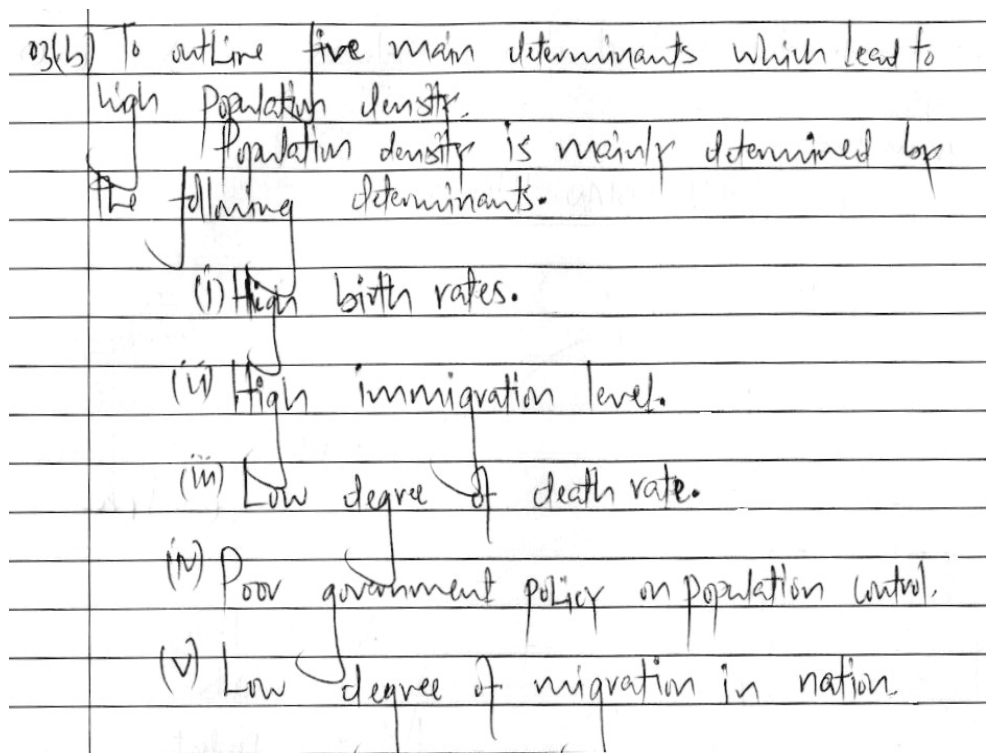 03(b) To outline five main determinants which lead to
high population density.
Population density is mainly determined by
the following determinants.
(i) High birth rates.
(ii) High immigration level.
(iii) Low degree of death rate.
(iv) Poor government policy on population control.
(v) Low degree of migration in nation.